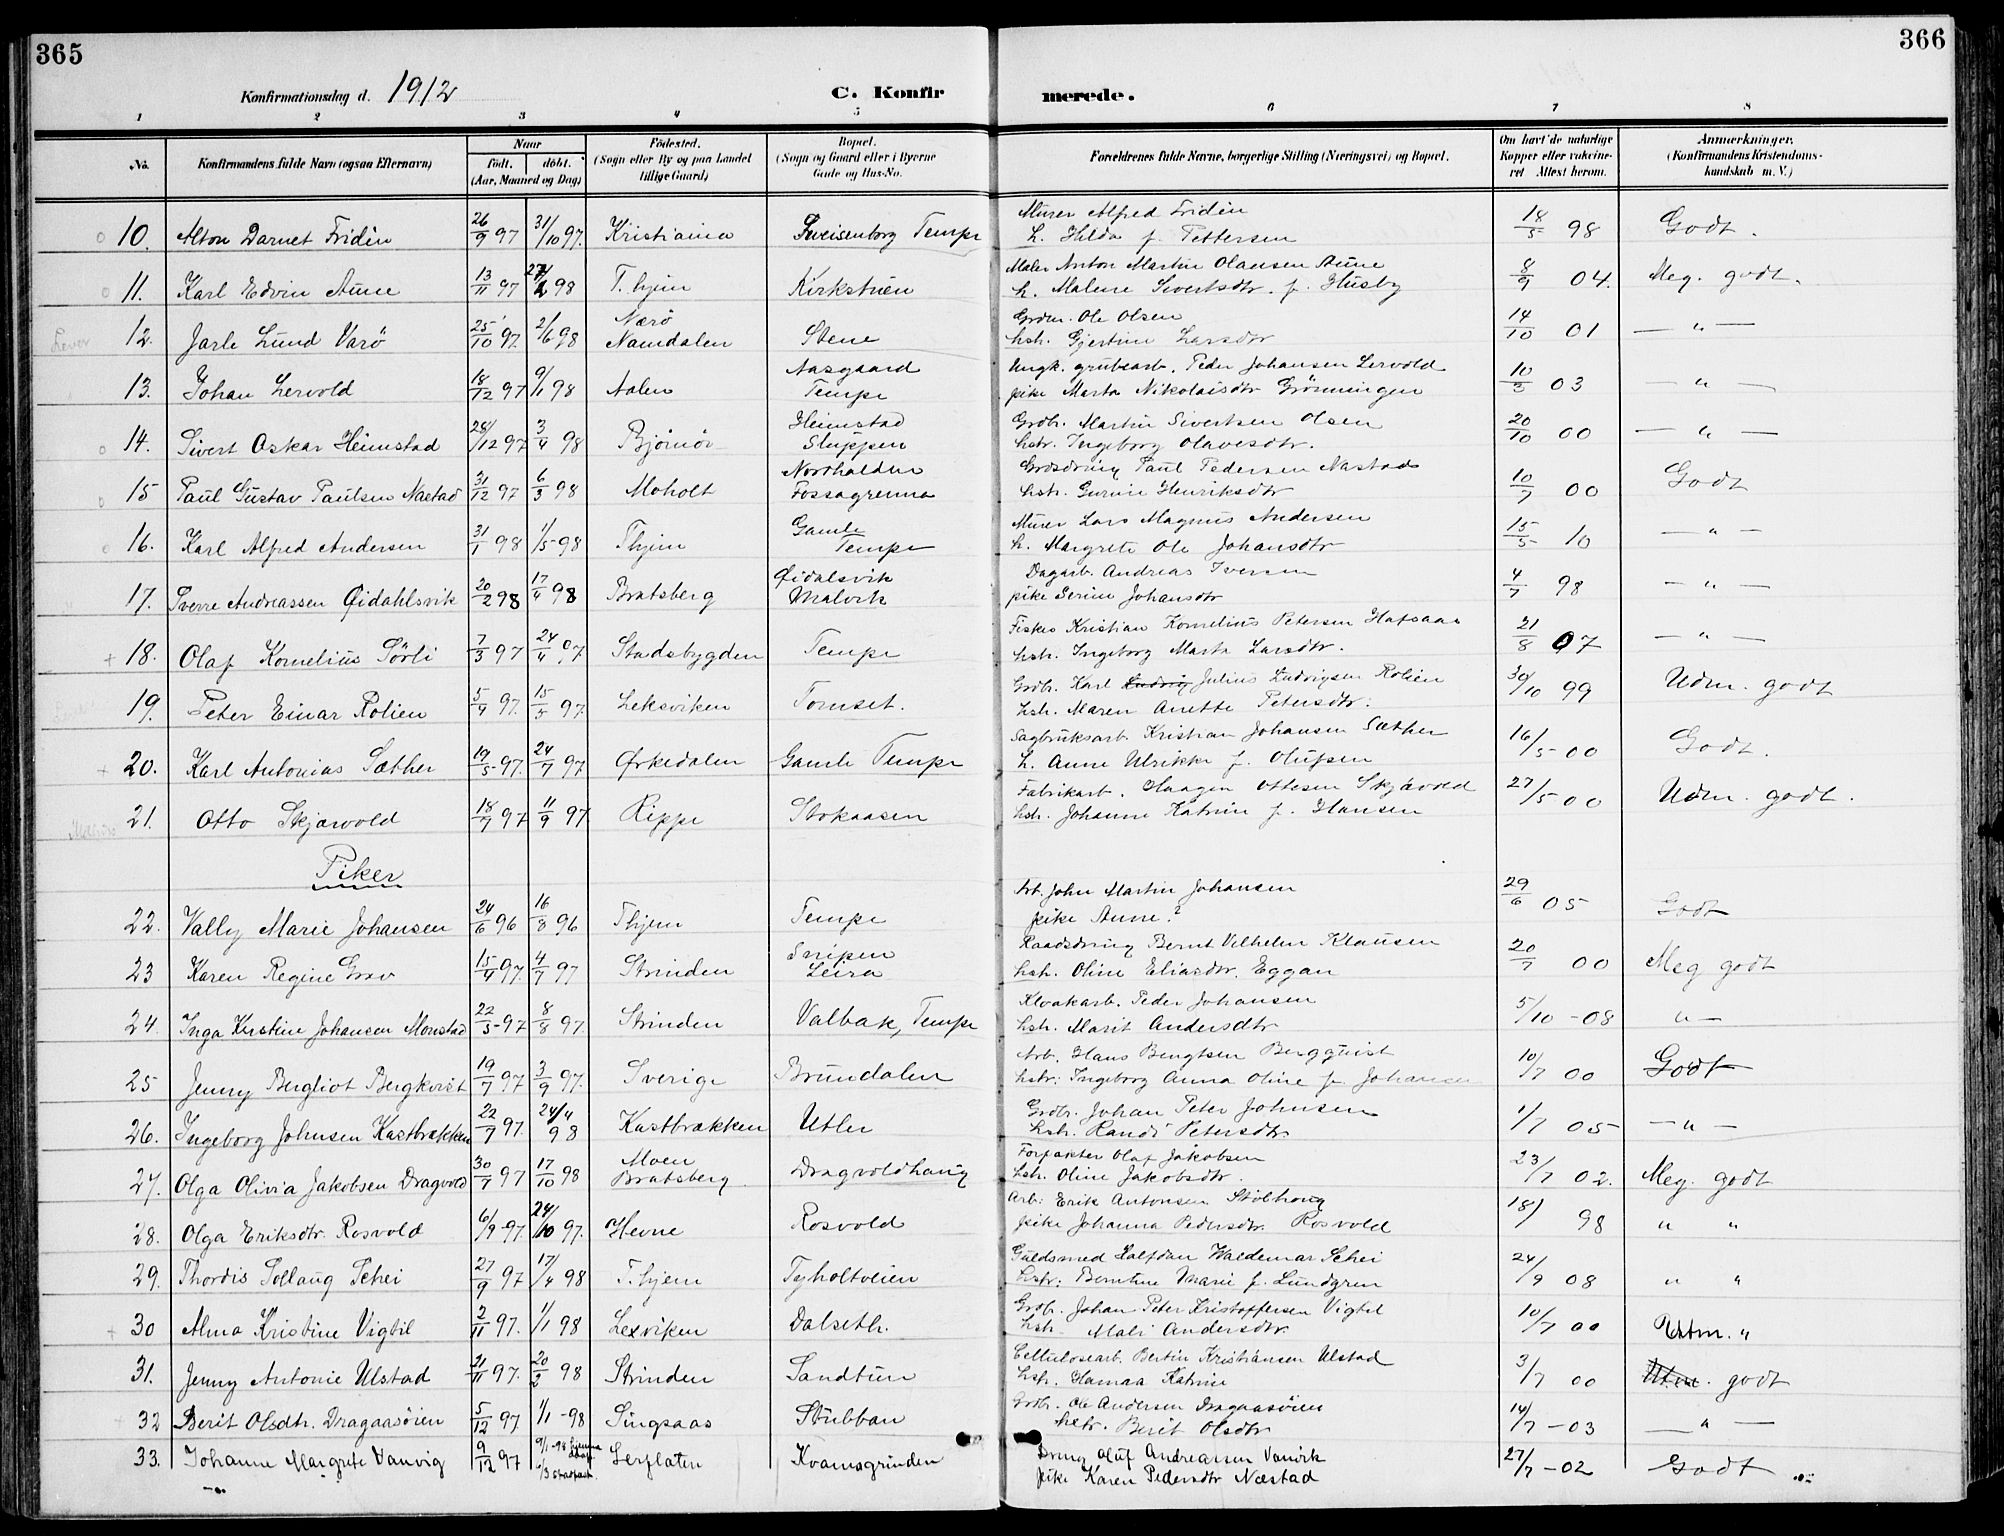 365
366
Konfirmationsdag d. 1912
C. Konfir
merede.
1 2 3 4 5 6 7 8
No. Konfirmandens fulde Navn (ogsaa Efternavn) Naar født. døbt. (Aar, Maaned og Dag) Fødested. (Sogn eller By og paa Landet tillige Gaard) Bopæl. (Sogn og Gaard eller i Byerne Gade og Hus-No. Forældrenes fulde Navne, borgerlige Stilling (Næringsvei) og Bopæl. Om havt de naturlige Kopper eller vakcineret Attest herom. Anmerkninger. (Konfirmandens Kristendomskundskab m. V.)
10. Alton Darnet Fridén 26/9 97 31/10 97. Kristiania Sveisenborg Tempe Murer Alfred Fridén 18/5 98 Godt.
h. Hilda f. Pettersen
11. Karl Edvin Aune 13/11 97 27/2 98 T.hjem Kirkstuen Maler Anton Martin Olausen Aune 8/9 04. Meg. godt.
h. Malene Sivertsdtr. f. Husby
12. Jarle Lund Varö 25/10 97. 2/6 98 Nærö Namdalen Stene Grdm. Ole Olsen 14/10 01 — " —
hsh. Gjertine Larsdtr
13. Johan Lervold 18/12 97 9/1 98 Aalen Aasgaard Tempe Ungk. grubearb. Peder Johansen Lervold 10/3 03 — " —
pike Marta Nikolaisdtr Grönningen
14. Sivert Oskar Heimstad 28/12 97 3/4 98 Björnör Heimstad Sluppen Grdbr. Martin Sivertsen Olsen 20/10 00 — " —
hstr. Ingeborg Olavesdtr.
15 Paul Gustav Paulsen Næstad 31/12 97 6/3 98 Moholt Nordhalden Fossagrenna Grdsdreng Paul Pedersen Nastads 10/7 00 Godt
hstr. Gurine Henriksdtr
16. Karl Alfred Andersen 31/1 98 1/5 98 Thjem Gamle Tempe Murer Lars Magnus Andersen 15/5 10 — " —
h. Margrete Ole Johansdtr
17. Sverre Andreassen Øidahlsvik 20/2 98 17/4 98 Bratsberg Øidalsvik Malvik Dagarb. Andreas Iversen 4/7 98 — " —
pike Serine Johansdtr
18. Olaf Kornelius Sörli 7/3 97 24/4 97 Stadsbygden Tempe Fisker Kristian Kornelius Petersen Hafsaas 21/8 07 — " —
hsh. Ingeborg Marta Larsdtr.
19. Peter Einar Rolien 5/4 97. 15/5 97. Leksviken Tomset. Grdbr. Karl Ludvig Julius Ludvigsen Rolien 30/10 99 Udm. godt
hsh. Maren Anette Petersdtr.
20. Karl Antonius Sæther 19/5 97. 24/7 97 Ørkedalen Gamle Tempe Sagbruksarb. Kristian Johansen Sæther 16/5 00 Godt.
h. Anne Ulrikke f. Olufsen
21. Otto Skjærvold 18/7 97 11/9 97 Rippe Stokaasen Fabrikarb. Haagen Ottesen Skjævold 27/5 00 Udm. godt.
hsh. Johanne Katrine f. Hansen
Piker
22. Vally Marie Johansen 24/6 96 16/8 96 Thjem Tempe Arb. John Martin Johansen 29/6 05 Godt
pike Anne.?
23 Karen Regine Grav 15/4 97. 4/7 97 Strinden Snipen Leira Raadsdreng Bernt Vilhelm Klausen 20/7 00 Meg godt
hsh. Oline Eliasdtr. Eggan
24. Inga Kirstine Johansen Monstad 22/5 97 8/8 97. Strinden Valbak, Tempe Kloakarb. Peder Johansen 5/10 - 08 " —
hsh. Marit Andersdtr
25 Jenny Bergliot Bergkvist 19/7 97 3/9 97. Sverige Brundalen Arb. Hans Bengtsen Bergquist 10/7 00 Godt
hstr: Ingeborg Anna Oline f. Johansen
26. Ingeborg Johnsen Kastbrækken 22/7 97. 24/4 98 Kastbrækken Utler Grdbr. Johan Peter Johnsen 1/7 05 — " —
hsh. Randi Petersdtr
27. Olga Olivia Jakobsen Dragvold 30/7 97 17/10 98 Moen Bratsberg Dragvoldhaug Forpakter Olaf Jakobsen 23/7 02. Meg. godt
hsh. Oline Jakobsdtr.
28. Olga Eriksdtr. Rosvold 6/9 97. 24/10 97. Hevne Rosvold Arb: Erik Antonsen Stölhaug 18/ 98 " "
pike Johanna Pedersdtr. Rosvold
29. Thordis Sollaug Schei 27/9 97 17/4 98 T.hjem Tyholtveien Guldsmed Halfdan Waldemar Schei 24/9 08 " "
hstr: Berntine Marie f. Lundgren
30 Alma Kristine Vigtil 2/11 97. 1/1 98 Lexviken Dalseth. Grdbr. Johan Peter Kristoffersen Vigtil 10/7 00 Utm. "
hsh. Mali Andersdtr.
31. Jenny Antonie Ulstad 21/11 97. 20/2 98 Strinden Sandtun Cellulosearb. Bertin Kristiansen Ulstad 3/7 00 Utm. godt
hsh. Hamaa Katrine
32 Berit Olsdtr. Dragaasöien 5/12 97 1/1 - 98 Singsaas Stubban Grdbr. Ole Andersen Dragaasöien 14/7 - 03 — " —
hstr. Berit Olsdtr
33. Johanne Margrete Vanvig 9/12 97 9/1-98 hjemmedøbt 6/3 stadfæst. Lerflaten Kvamsgrinden Dreng Oluf Andreassen Vanvik 27/7 - 02 Godt
pike Karen Pedersdtr Næstad